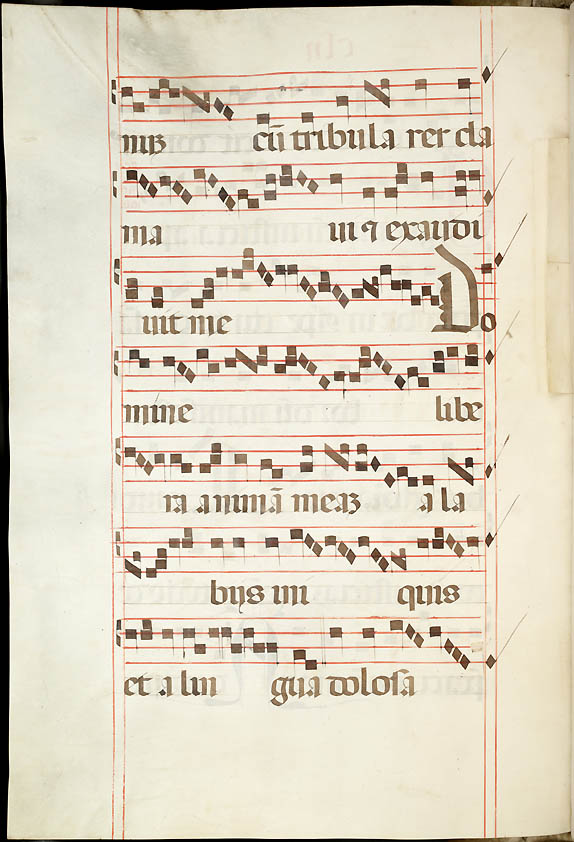 mꝝ cū tribula rer cla
ma ui ⁊ exaudi
uit me Do
mine libe
ra animā meaꝫ a la
bijs ini quis
et a lin gua dolosa